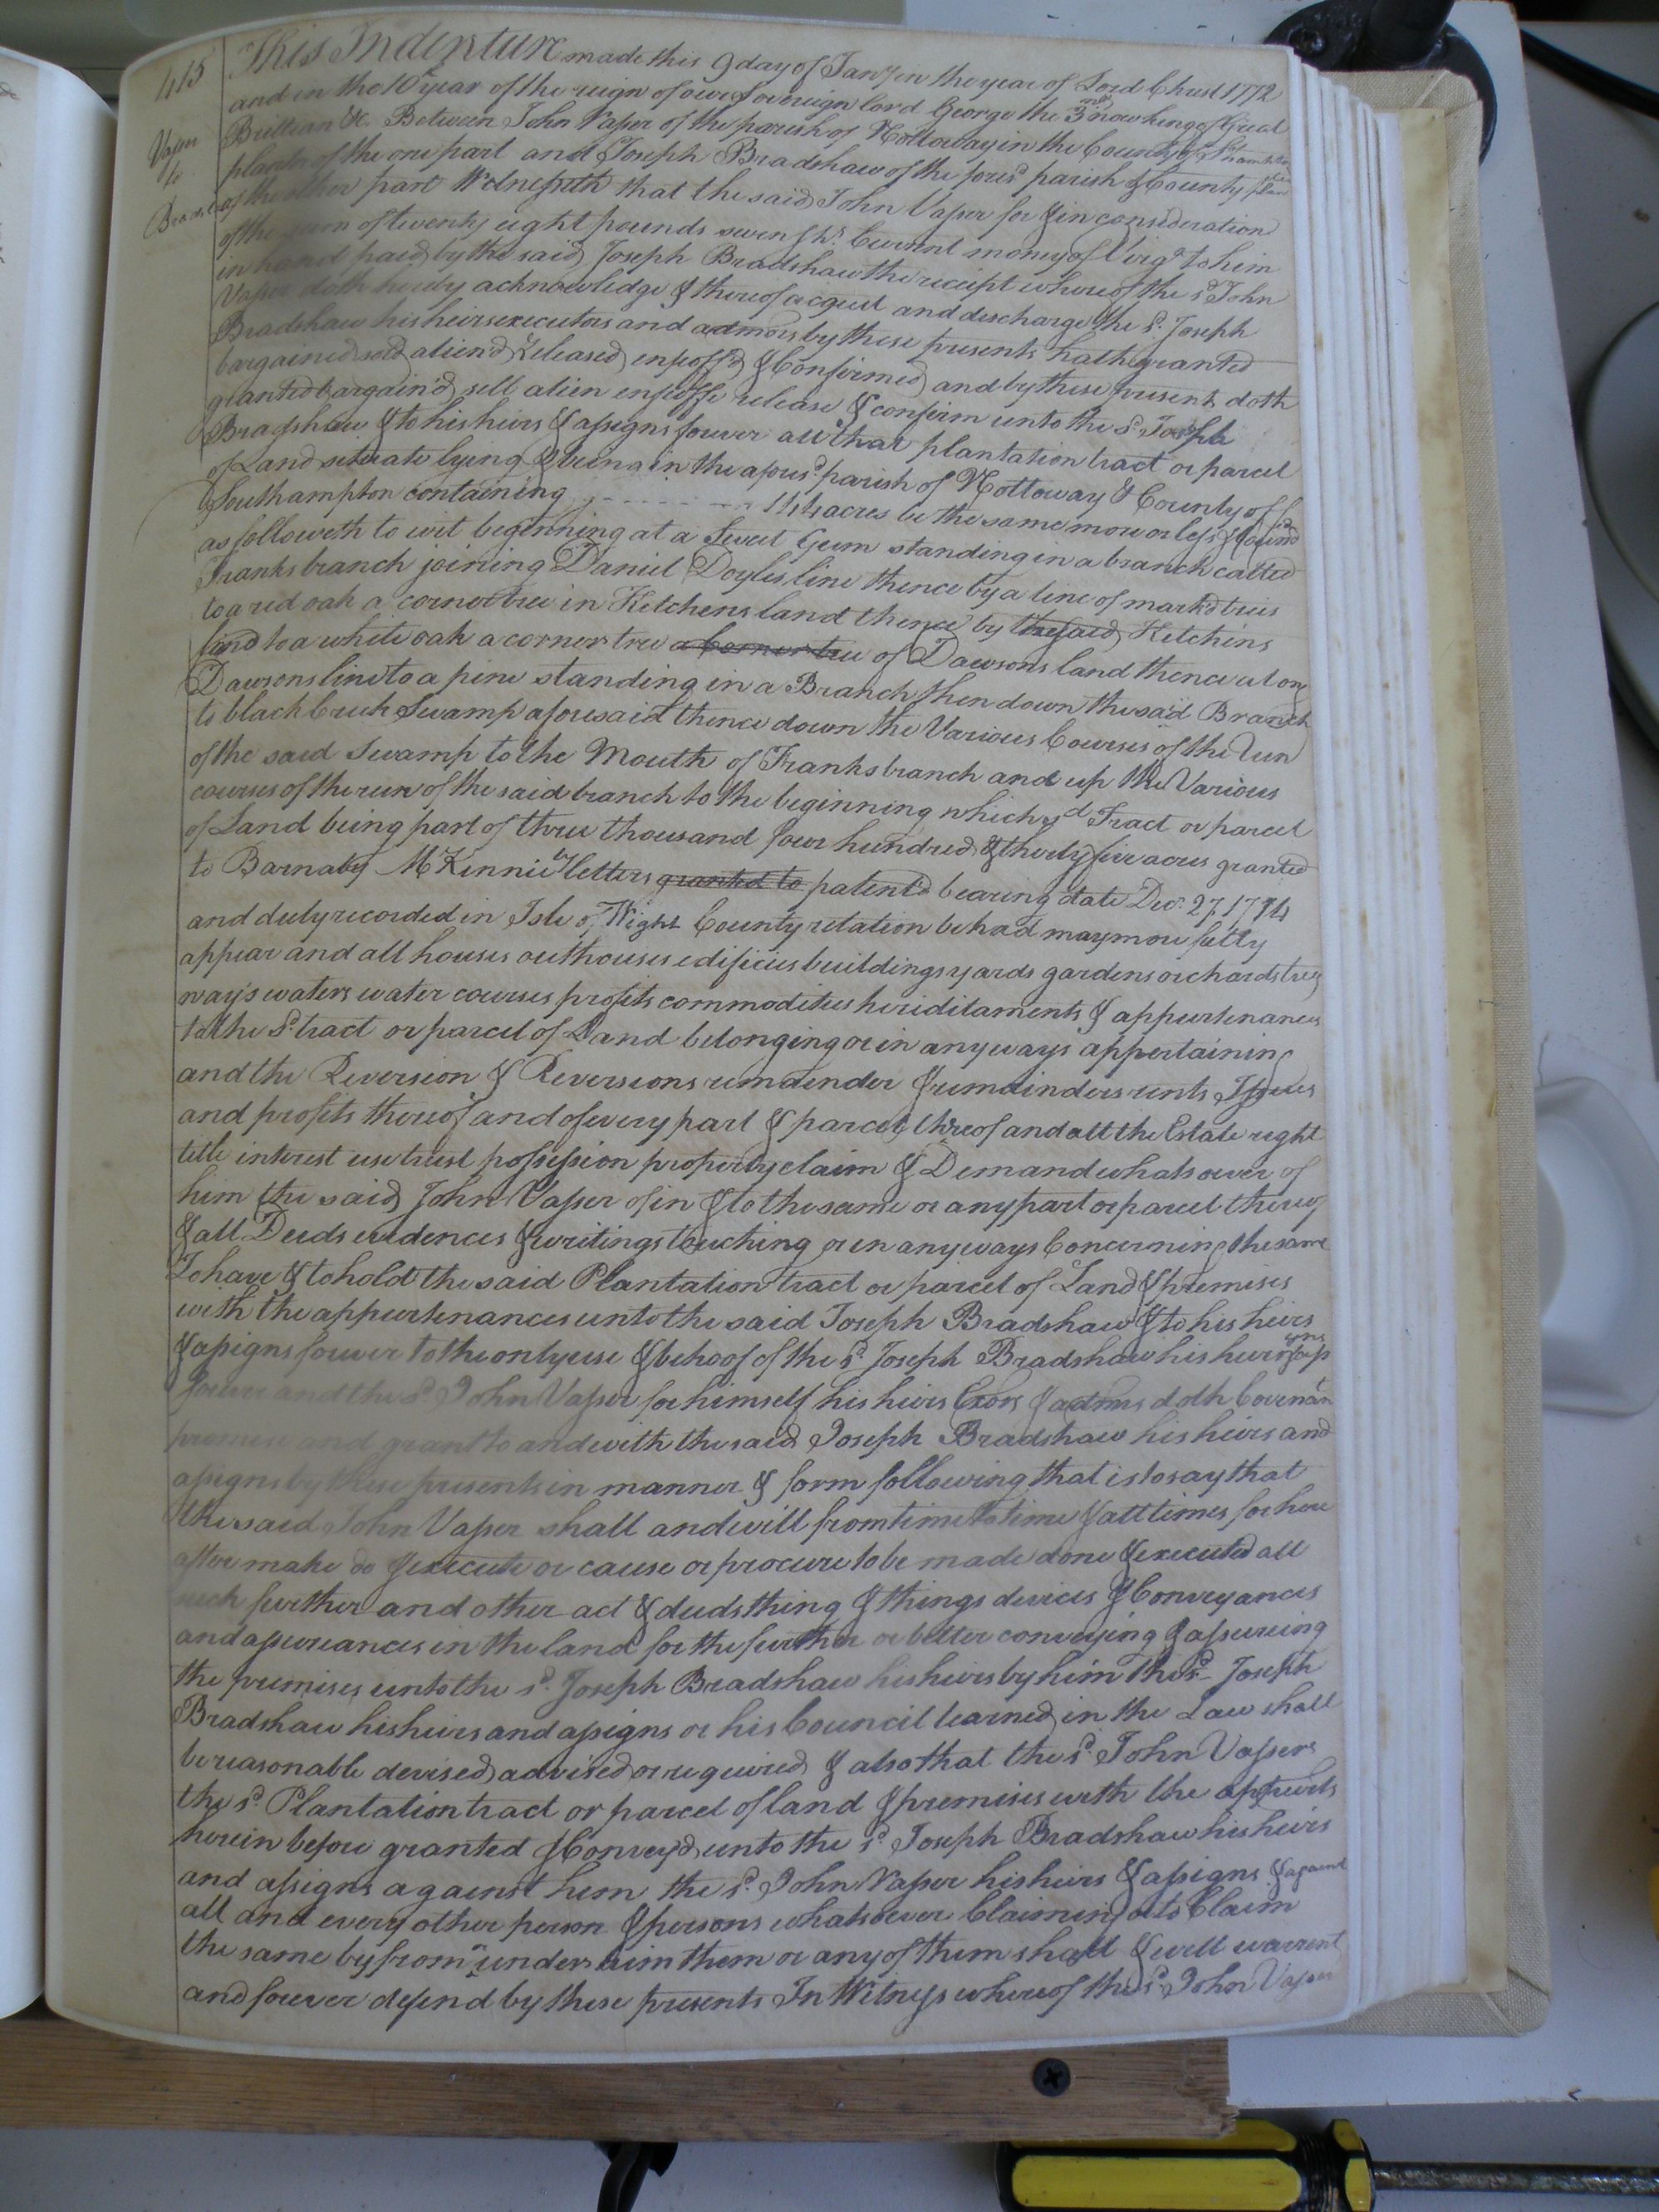 415
Vasser
to
Brads
This Indenture made this 9 day of Jany in the year of Lord Christ 1772
and in the 10th year of the reign of our Sovereign lord George the 3 now king of Great
Brittian &c. Between John Vasser of the parish of Nottoway in the County of Southampton
planter of the one part and Joseph Bradshaw of the fores'd parish & County
of the other part Witnesseth that the said John Vasser for & in consideration
of the sum of twenty eight pounds seven shs. Current money of Virga to him
in hand paid by the said Joseph Bradshaw the receipt whereof the sd John
Vasser doth hereby acknowledge & thereof acquit and descharge the sd. Joseph
Bradshaw his heirs executors and admors by these presents hath granted
bargained sold alien'd Released enfeoff'd & Confirmed and by these presents doth
granted bargain'd sell alien enfeoffe release & confirm unto the sd. Joseph
Bradshaw & to his heirs & assigns forever all that plantation tract or parcel
of Land situate lying & being in the afores'd parish of Nottoway & County of
Southampton containing - - - - - - - 144 acres be the same more or less & bound
as followeth to wit beginning at a Sweet Gum standing in a branch called
Franks branch joining Daniel Doyles line thence by a line of mark'd trees
to a red oak a corner tree in Kitchens land thence by the said Kitchins
land to a white oak a corner tree a Corner tree of Dawsons land thence along
Dawsons line to a pine standing in a Branch then down the said Branch
to black Creek Swamp aforesaid thence down the Various Courses of the Run
of the said Swamp to the Mouth of Franks branch and up the Various
courses of the run of the said branch to the beginning which sd Tract or parcel
of Land being part of three thousand four hundred & therty five acres granted
to Barnaby McKinnie by letters granted to patent'd bearing date Dec. 27, 1714
and duly recorded in Isle of Wight County relation be had may more fully
appear and all houses outhouses edificies buildings yards gardens orchards trees
ways waters water courses profits commodities heriditaments & appurtenances
to the sd. tract or parcel of Land belonging or in anyways appertaining
and the Reversion & Reversions remainder & remainders rents Issues
and profits thereof and of every part & parcel thereof and all the Estate right
title interest use trust possession property claim & Demand whatsoever of
him the said John Vasser of in & to the same or any part or parcel thereof
& all Deeds evidences & writings touching or in anyways Concerning the same
To have & to hold the said Plantation tract or parcel of Land & premises
with the appurtenances unto the said Joseph Bradshaw & to his heirs
& assigns forever to the only use & behoof of the sd. Joseph Bradshaw his heirs & assigns
forever and the sd. John Vasser for himself his heirs Exors & admrs doth Covenan
promise and grant to and with the said Joseph Bradshaw his heirs and
assigns by these presents in manner & form following that is to say that
the said John Vasser shall and will from time to time & all times for here
after make do & execute or cause or procure to be made done & executed all
such further and other act & deeds thing & things devices & Conveyances
and assureances in the land for the further or better conveying & assureing
the premises unto the sd. Joseph Bradshaw his heirs by him the sd. Joseph
Bradshaw his heirs and assigns or his Council learned in the Law shall
be reasonable devised advised or required & also that the sd. John Vassers
the sd. Plantation tract or parcel of land & premises with the appurts
herein before granted & Convey'd unto the sd. Joseph Bradshaw his heirs
and assigns against him the sd. John Vasser his heirs & assigns & against
all and every other person & persons whatsoever Claiming or to Claim
the same by from or under him them or any of them shall & will warrent
and forever defend by these presents In Witness whereof the sd. John Vasser